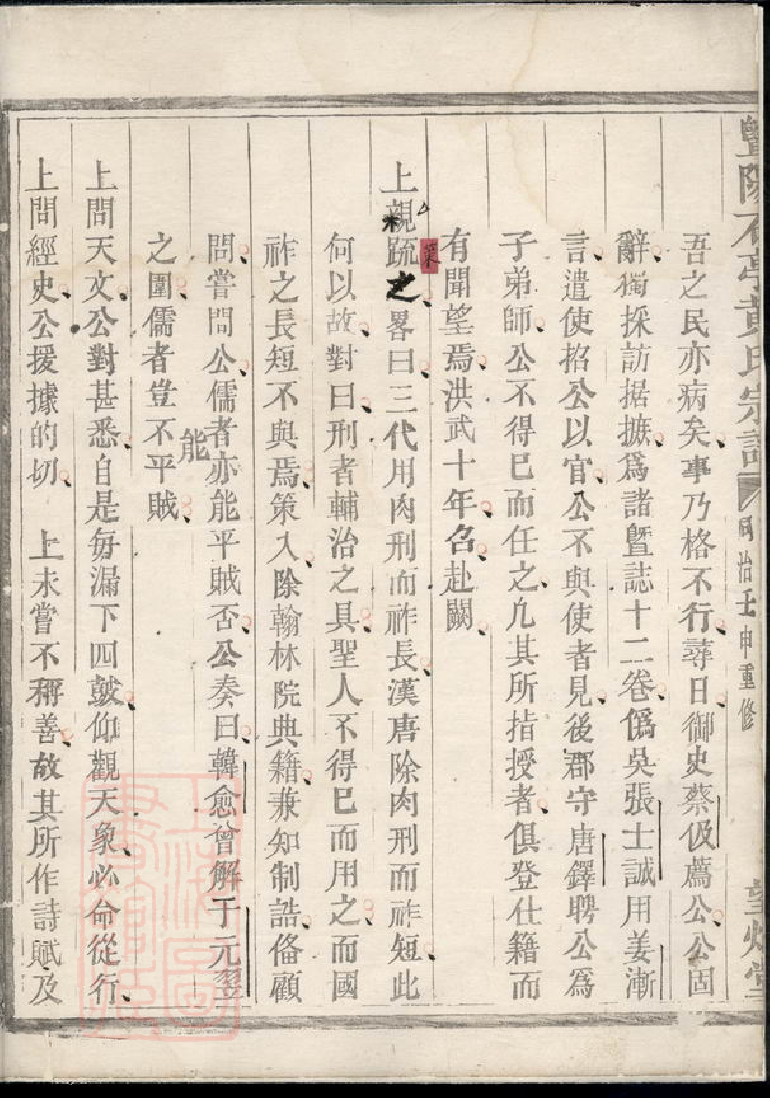 暨陽石亭黃氏宗譜 同治壬申重修
吾之民亦病矣事乃格不行尋日御史蔡伋薦公公固
辭獨採訪据摭爲諸暨誌十二卷僞吳張士誠用姜漸
言遣使招公以官公不與使者見後郡守唐鐸聘公爲
子弟師公不得已而任之凢其所指授者俱登仕籍而
有聞望焉洪武十年召赴闕
上親䟽之畧曰三代用肉刑而祚長漢唐除肉刑而祚短此
策
何以故對曰刑者輔治之具聖人不得已而用之而國
祚之長短不與焉策入除翰林院典籍兼知制誥俻顧
問嘗問公儒者亦能平賊否公奏曰韓愈曾解于元翌
之圍儒者豈不平賊
能
上問天文公對甚悉自是每漏下四皷仰觀天象必命從行
上問經史公援據的切 上未嘗不稱善故其所作詩賦及